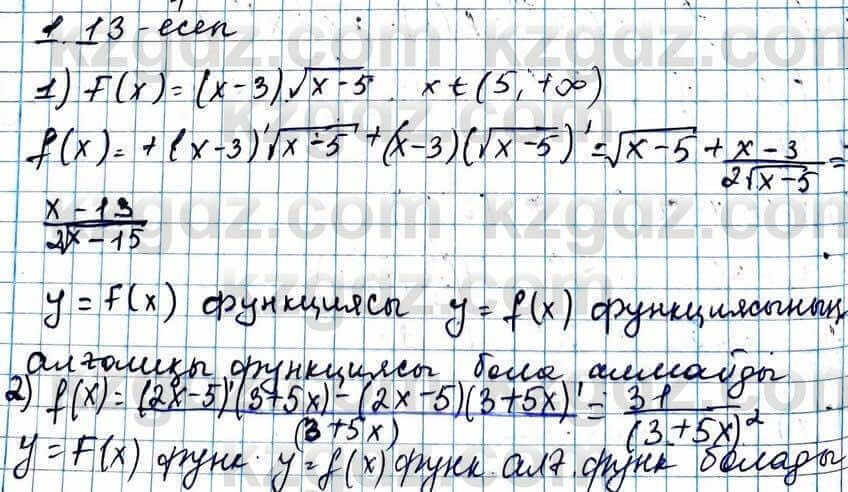 1.13-есеп
1) F(x) = (x-3)√x-5 x ∈ (5, +∞)
f(x) = + (x-3)'√x-5 + (x-3)(√x-5)' = √x-5 + x-3 / 2√x-5 =
x-13 / 2√x-15
y = F(x) функциясы y = f(x) функциясының
алғашқы функциясы бола алмайды
2) f(x) = (2x-5)'(3+5x) - (2x-5)(3+5x)' / (3+5x) = 31 / (3+5x)²
y = F(x) функ. y = f(x) функ. алғ. функ болады
kzgdz.com